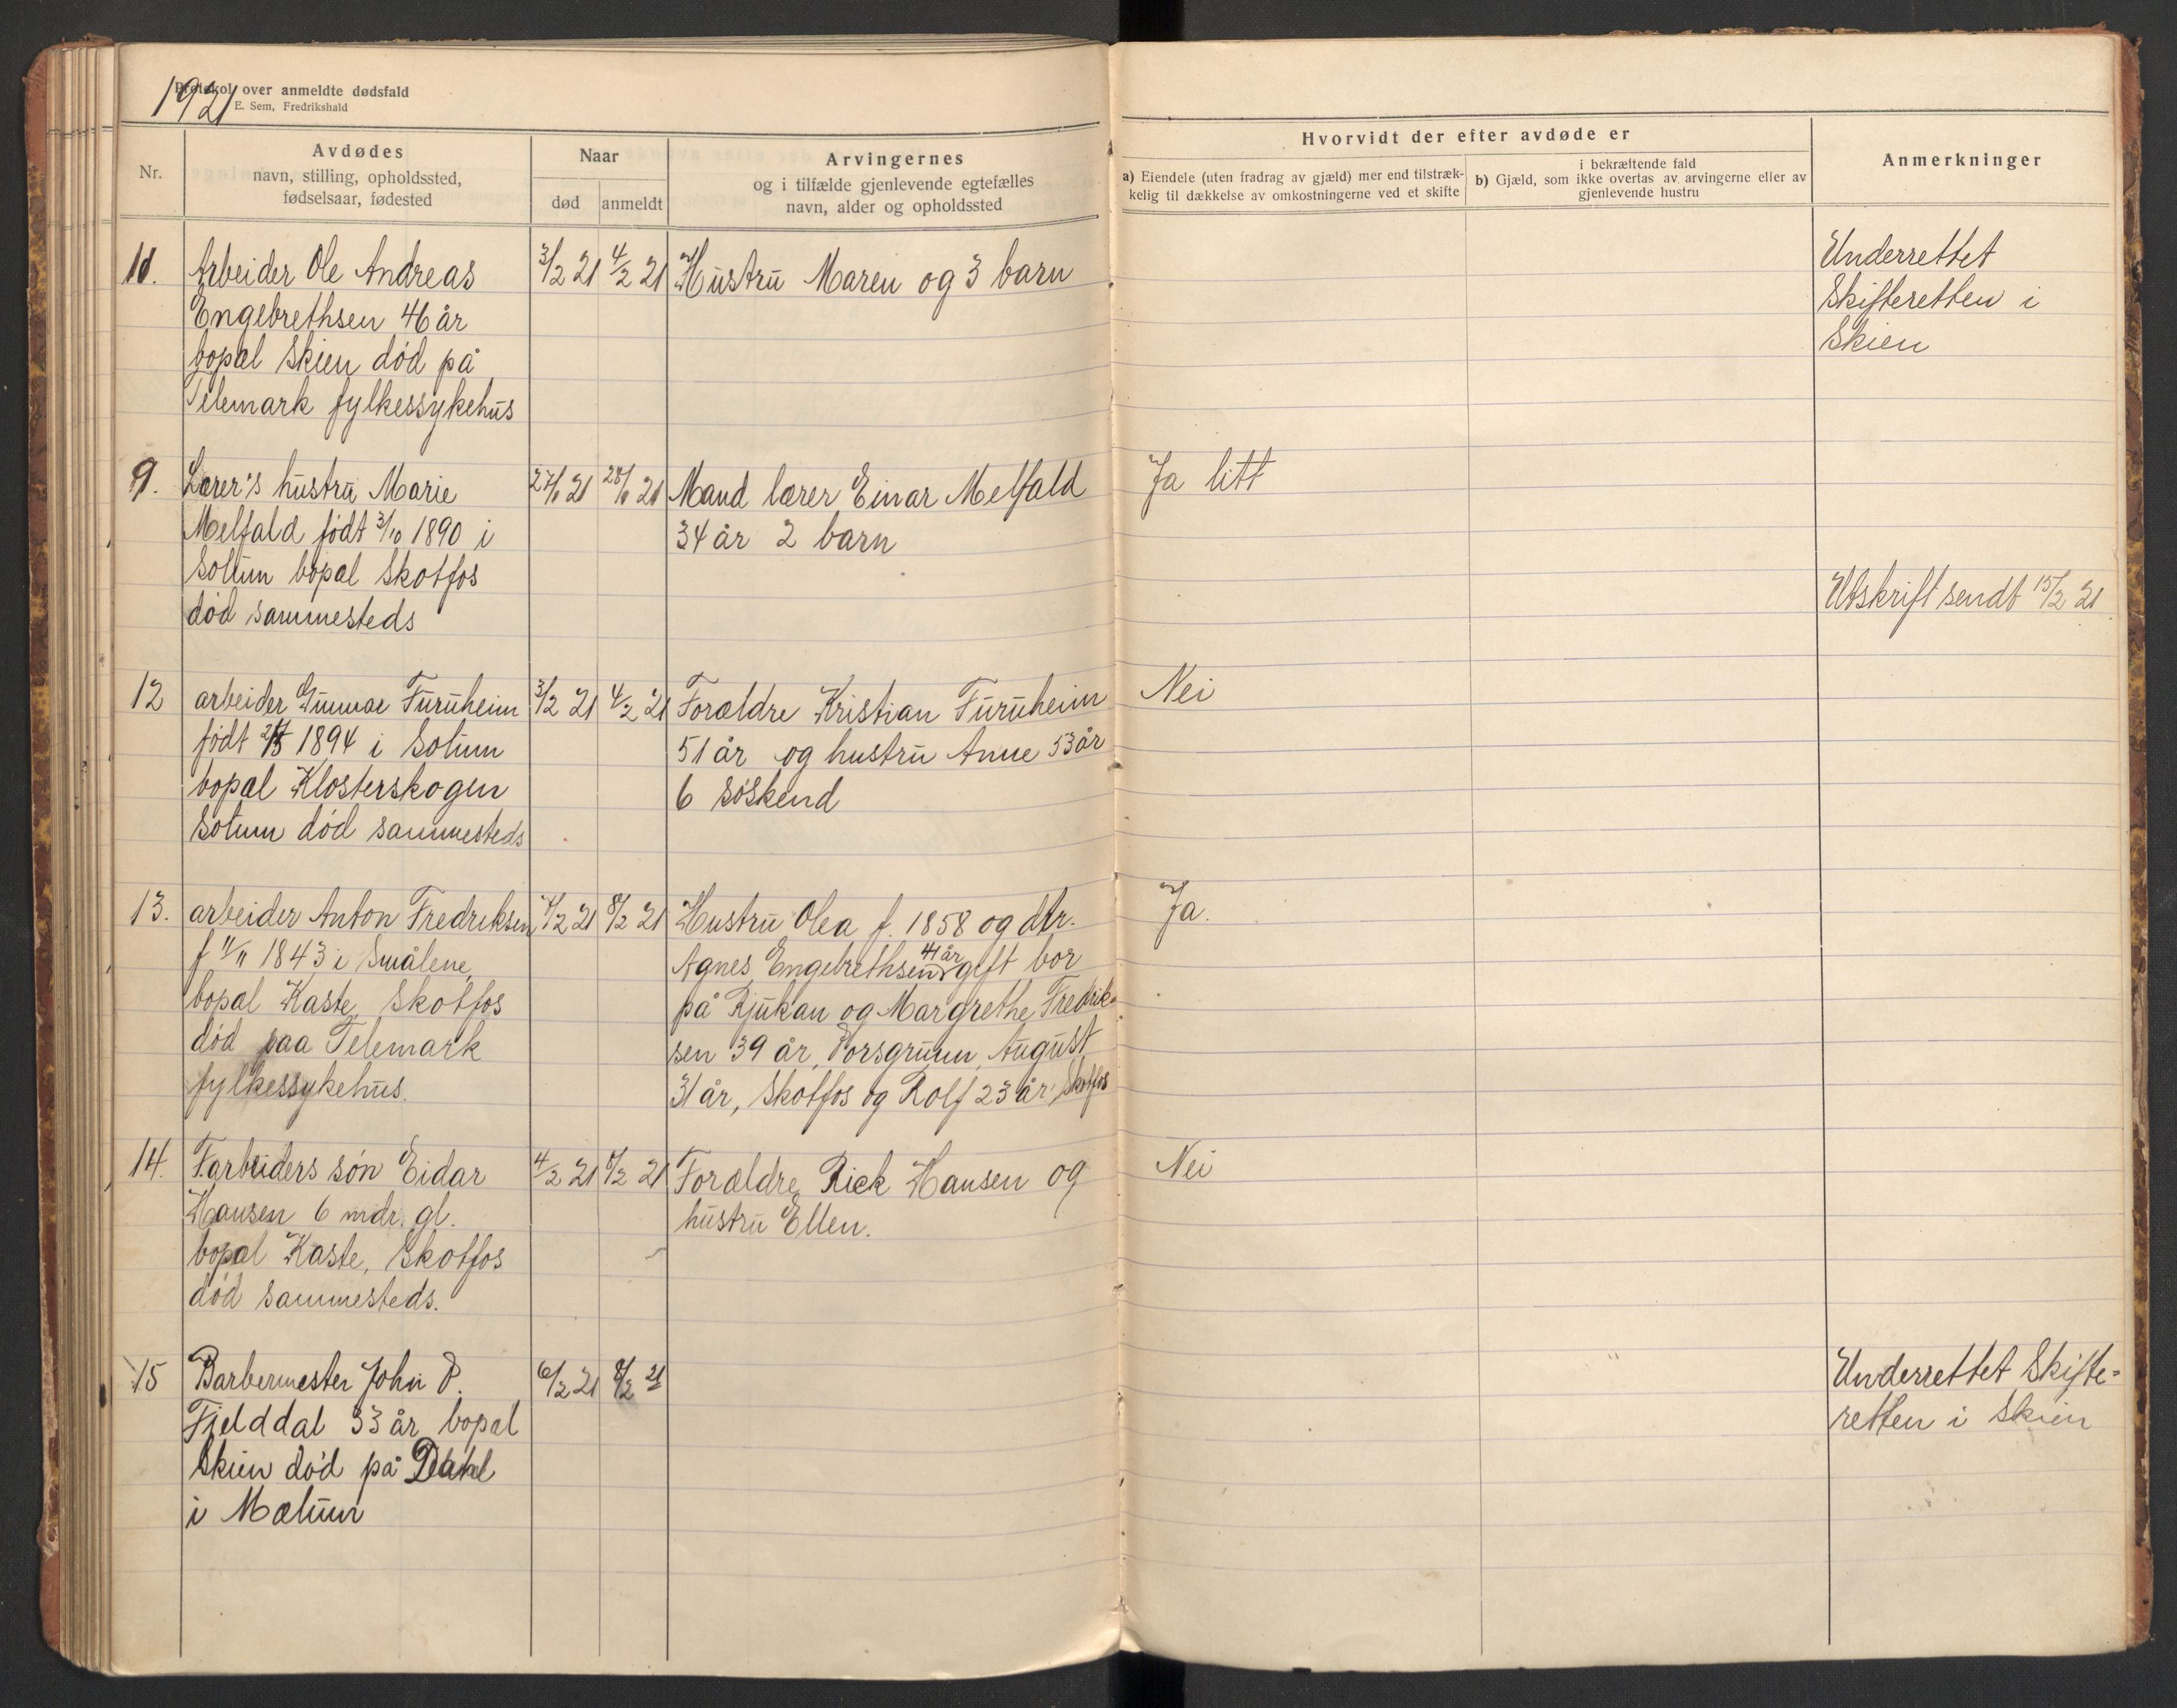 1921
Protokol over anmeldte dødsfald
E. Sem, Fredrikshald
Nr.
Avdødes
navn, stilling, opholdssted,
fødselsaar, fødested
Naar
død
anmeldt
Arvingernes
og i tilfælde gjenlevende egtefælles
navn, alder og opholdssted
Hvorvidt der efter avdøde er
a) Eiendele (uten fradrag av gjæld) mer end tilstræk-
kelig til dækkelse av omkostningerne ved et skifte
i bekræftende fald
b) Gjæld, som ikke overtas av arvingerne eller av
gjenlevende hustru
Anmerkninger
Arbeider Ole Andreas
Engebrethsen 46 år
bopæl Skien død på
Telemark fylkessykehus
3/2 21
4/2 21
Hustru Maren og 3 barn
Underrettet
Skifteretten i
Skien
9.
Lærer's hustru Marie
Melfald født 3/10 1890 i
Solum bopæl Skotfos
død sammesteds
27/1 21
28/1 21
Mand lærer Einar Melfald
34 år 2 barn
Ja litt
Utskrift sendt 15/2 21
12
arbeider Gunnar Furuheim
født 1894 i Solum
bopæl Klosterskogen
Solum død sammesteds
3/2 21
4/2 21
Forældre Kristian Furuheim
51 år og hustru Anne 53 år
6 søskend
Nei
13.
arbeider Anton Fredriksen
f 11/11 1843 i Smålene
bopæl Kaste, Skotfos
død paa Telemark
fylkessykehus.
/2 21
8/2 21
Hustru Olea f. 1858 og dtr.
Agnes Engebrethsen 41 år gift bor
på Rjukan og Margrethe Fredrik-
sen 39 år, Porsgrunn, August
31 år, Skotfos og Rolf 23 år, Skotfos
Ja.
14.
Farbeiders søn Eidar
Hansen 6 mdr. gl.
bopæl Kaste, Skotfos
død sammesteds.
4/2 21
8/2 21
Forældre Rick Hansen og
hustru Ellen.
Nei
15
Barbermester John P.
Fjelddal 33 år bopæl
Skien død på
i Mælum
6/2 21
8/2 21
Underrettet Skifte-
retten i Skien